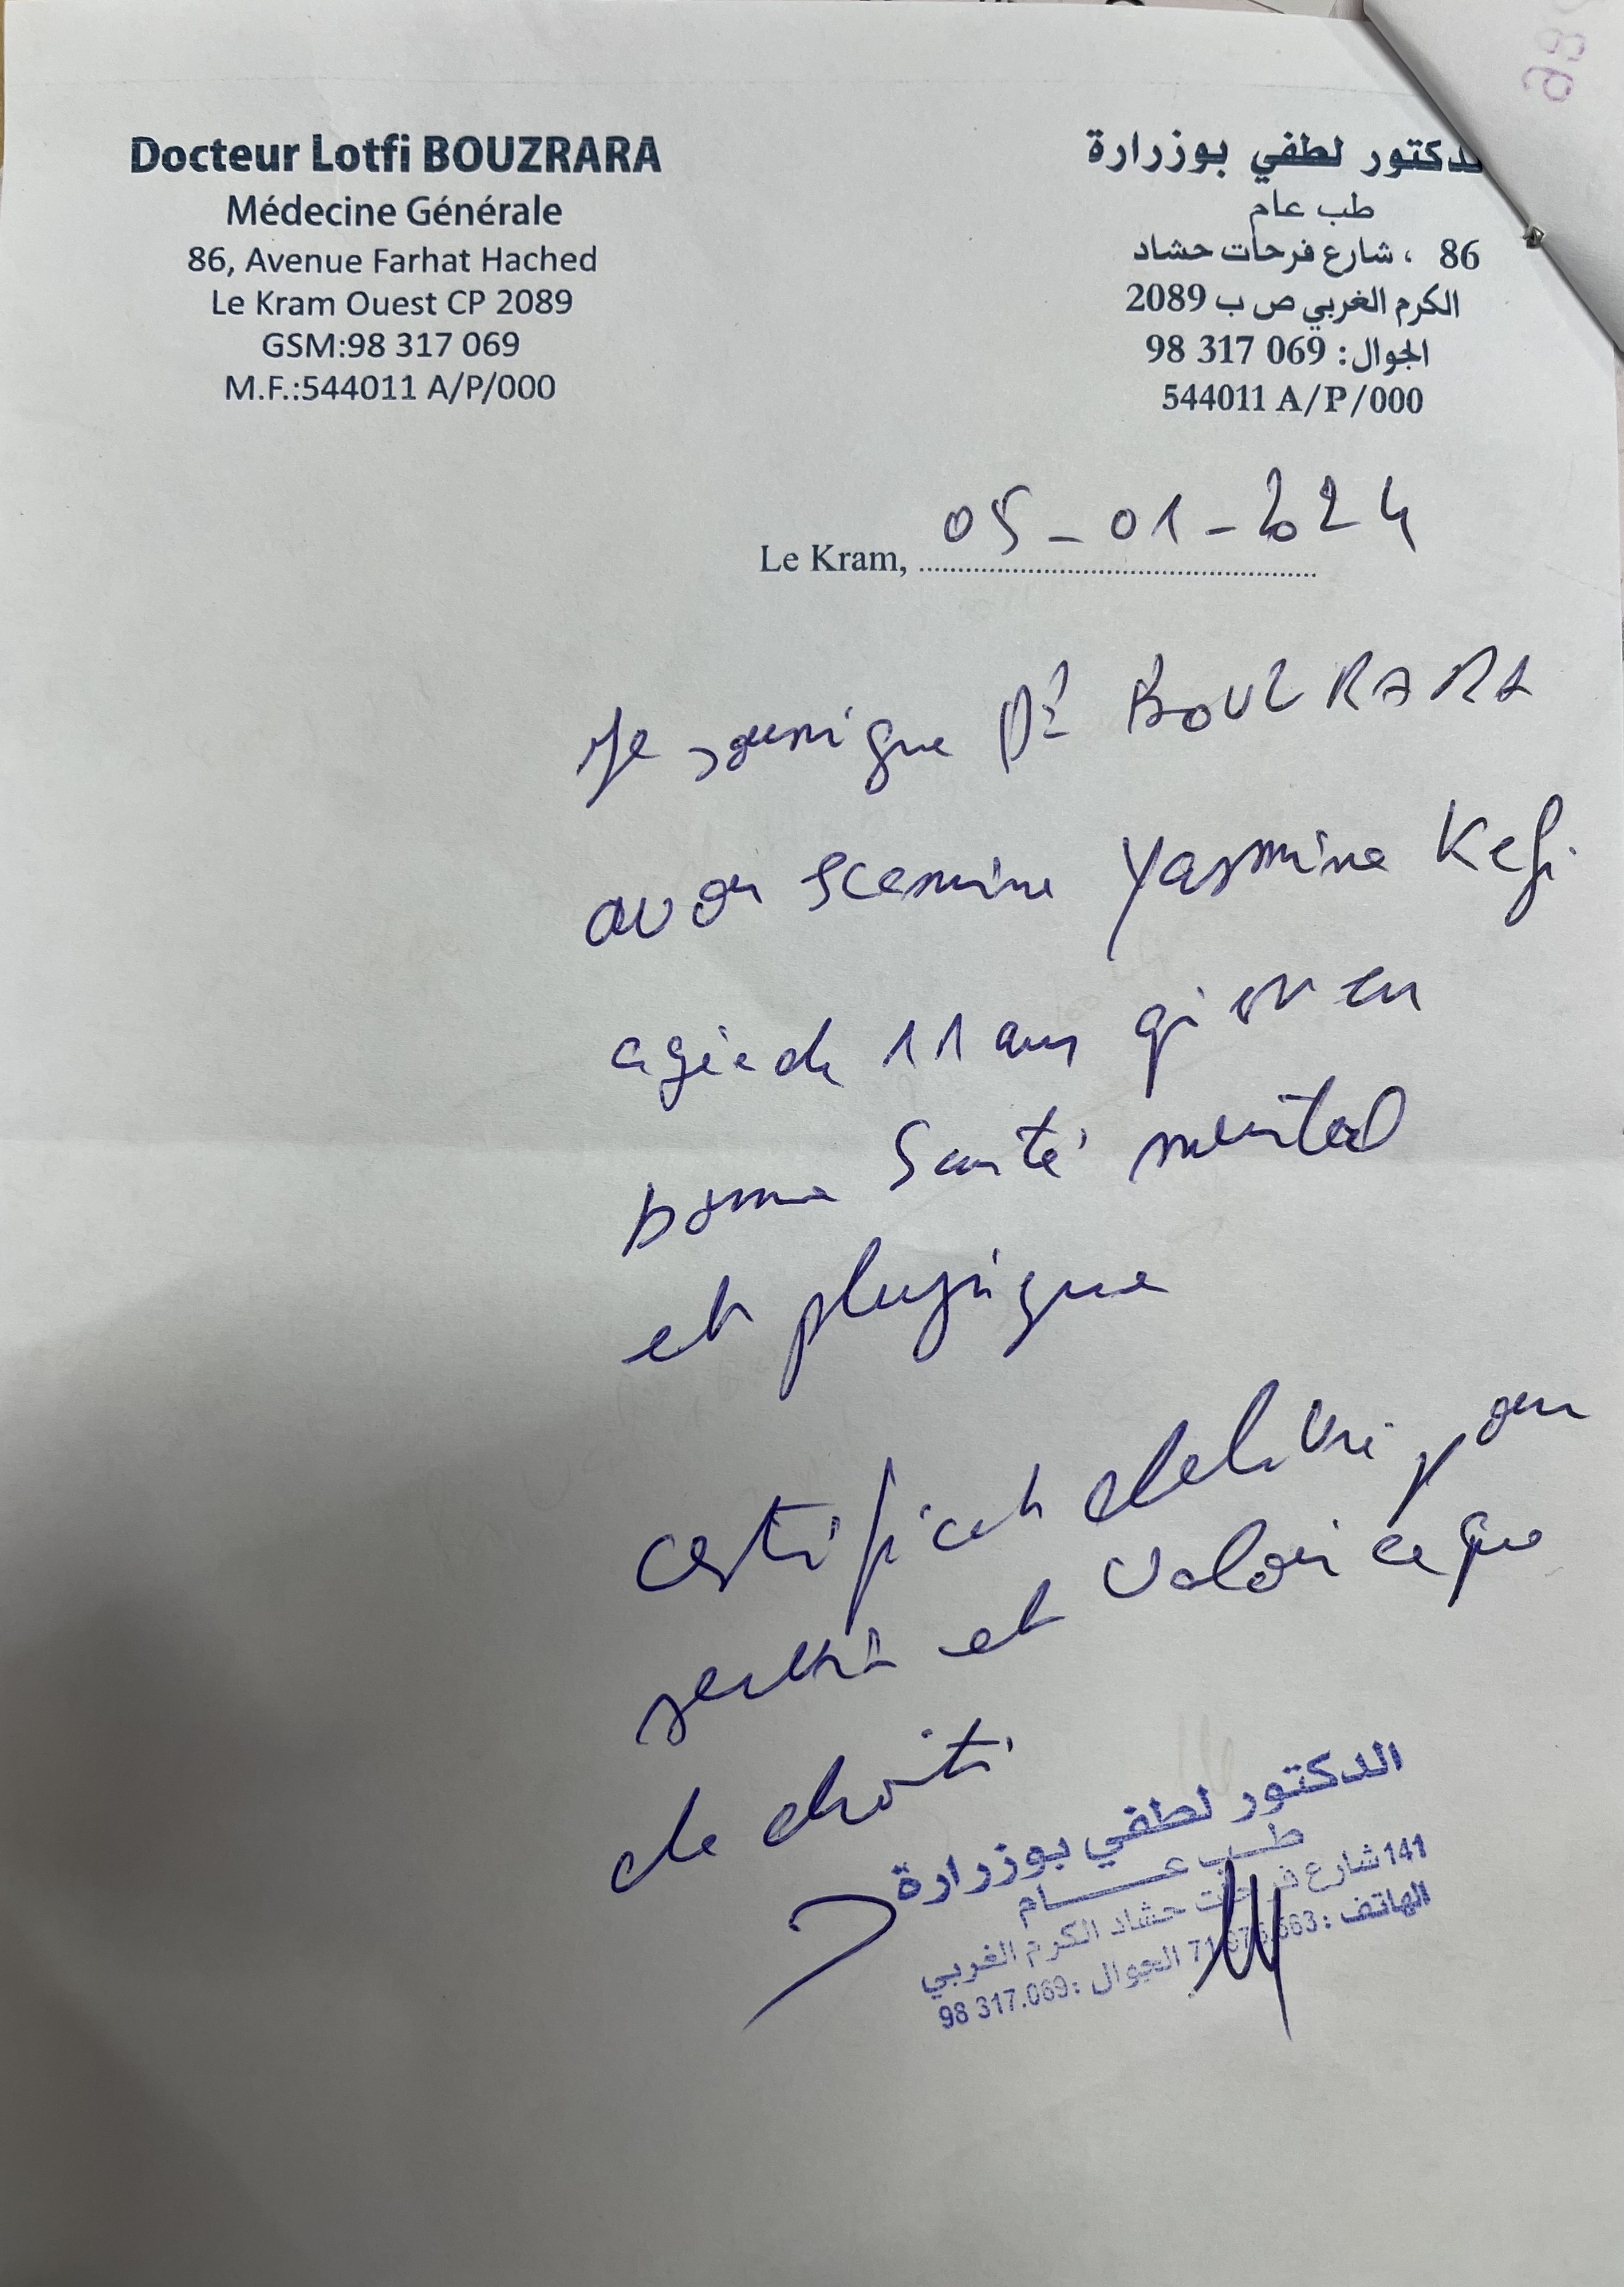 Docteur Lotfi BOUZRARA
Médecine Générale
86, Avenue Farhat Hached
Le Kram Ouest CP 2089
GSM:98 317 069
M.F.:544011 A/P/000
الدكتور لطفي بوزرارة
طب عام
86 ، شارع فرحات حشاد
الكرم الغربي ص ب 2089
الجوال: 069 317 98
544011 A/P/000
Le Kram, 05-01-2024
Je soussigne Dr BOUZRARA
avoir examine Yasmine Kefi
agée de 11 ans qi est en
bonne Santé mental
et physique
certificat delivré pour
servir et valoir ce que
de droit
الدكتور لطفي بوزرارة
طب عام
141 شارع فرحات حشاد الكرم الغربي
الهاتف : الجوال : 98 317.069